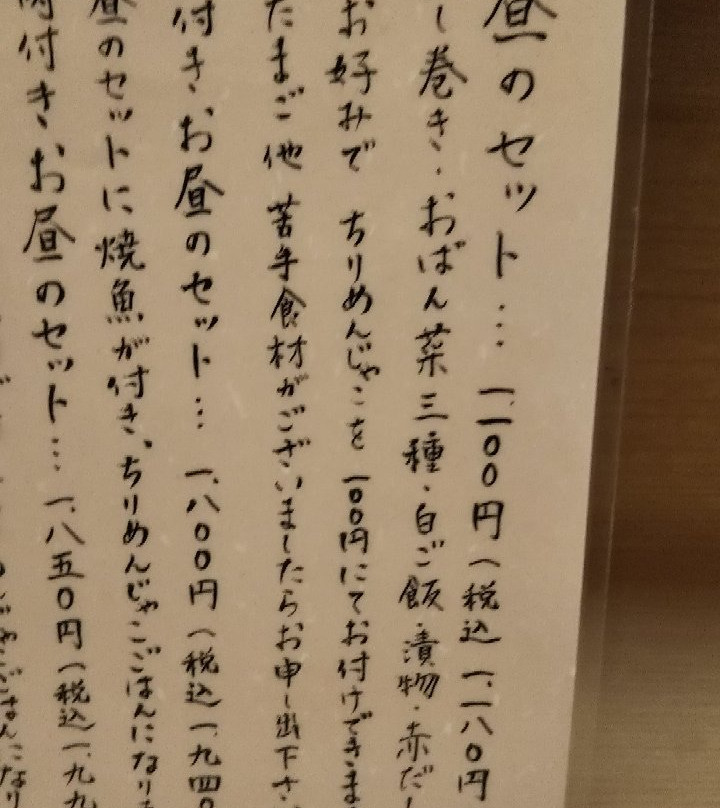 昼のセット… 一、一〇〇円（税込 一、一八〇円
し巻き・おばん菜三種・白ご飯・漬物・赤だし
お好みで ちりめんじゃこを一〇〇円にてお付けできま
たまご他 苦手食材がございましたらお申し出下さ
付き・お昼のセット… 一、八〇〇円（税込 一、九四〇
昼のセットに焼魚が付き、ちりめんじゃこごはんになりま
付き・お昼のセット… 一、八五〇円（税込 一、九九
じゃこごはんになり